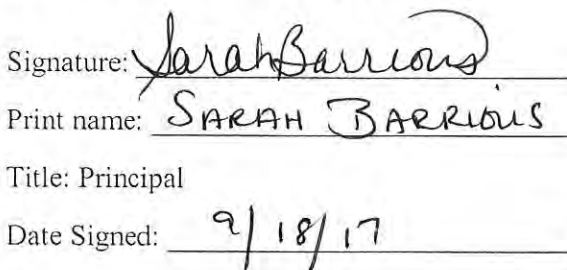 Signature: Sarah Barrious
Print name: SARAH BARRIOUS
Title: Principal
Date Signed: 9/18/17